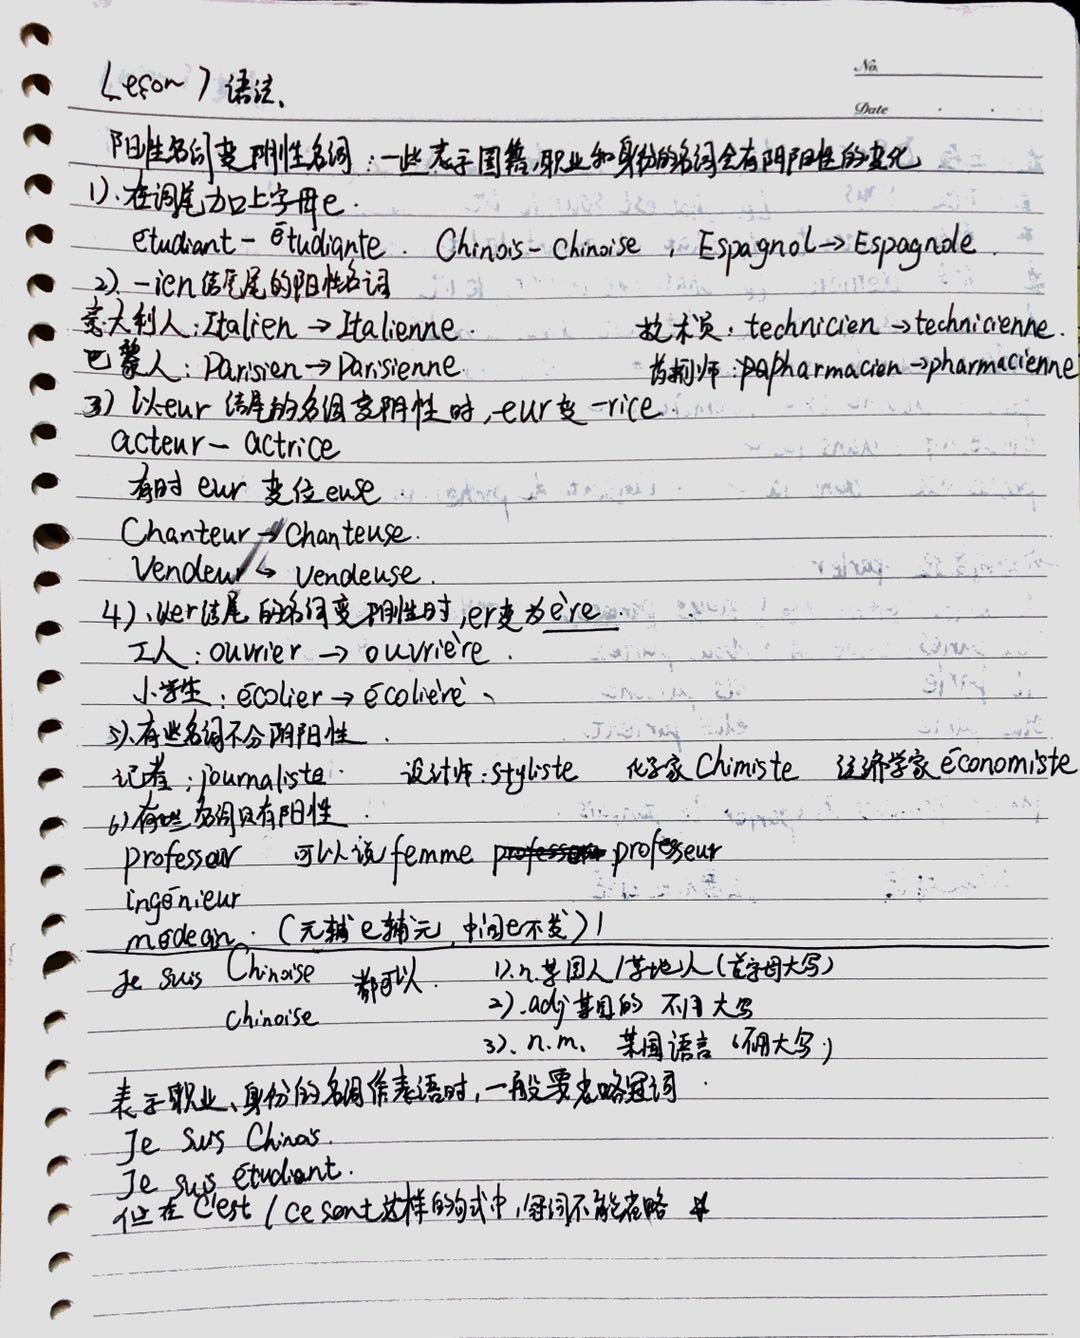 No.
Leçon 7 语法、
Date
阳性名词变阴性名词：一些表示国籍,职业和身份的名词会有阴阳性的变化
1)、在词尾加上字母e.
étudiant - étudiante. Chinois - Chinoise , Espagnol → Espagnole
2)、-ien结尾尾的阳性名词
意大利人：Italien → Italienne. 技术员：technicien → technicienne.
巴黎人：Parisien → Parisienne. 药剂师：papharmacien → pharmacienne
3) 以eur结尾的名词变阴性时,-eur变-rice
acteur - actrice
有时 eur 变位 euse
Chanteur → Chanteuse.
Vendeur → vendeuse.
4)、er结尾的名词变阴性时,er变为ère.
工人：ouvrier → ouvrière.
小学生：écolier → écolière、
5)、有些名词不分阴阳性.
记者：journaliste. 设计师：styliste 化学家 Chimiste 经济学家 économiste
6) 有些名词只有阳性.
professeur 可以说 femme professeur professeur
ingénieur
médecin. (元辅e辅元,中间e不发)!
Je suis Chinoise 都可以. 1).n.某国人/某地人(首字母大写)
chinoise 2).adj 某国的 不用大写
3).n.m、某国语言(不用大写.)
表示职业、身份的名词作表语时,一般要省略冠词.
Je suis Chinois.
Je suis étudiant.
但在 c'est / ce sont 这样的句式中,冠词不能省略